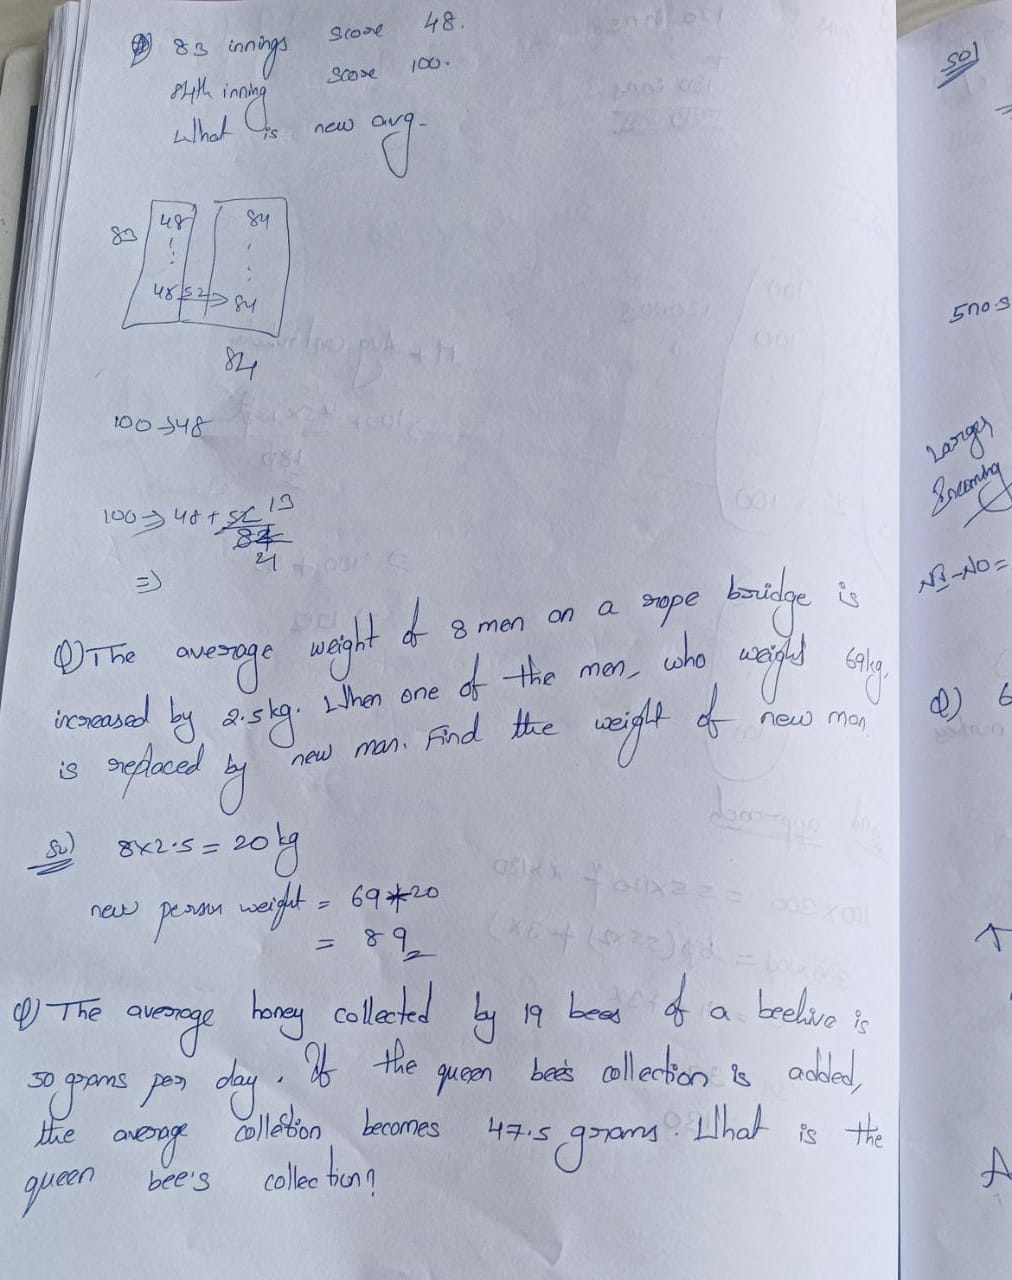 Q) 83 innings score 48.
84th inning score 100.
What is new avg.
83 48 84
48 52 → 84
84
100 → 48
100 ⇒ 48 + 52 13
84
21
⇒
Q) The average weight of 8 men on a rope bridge is
increased by 2.5kg. When one of the men, who weighs 69kg,
is replaced by new man. Find the weight of new man.
Sol) 8x2.5 = 20 kg
new person weight = 69+20
= 89
Q) The average honey collected by 19 bees of a beehive is
50 grams per day. If the queen bee's collection is added,
the average collection becomes 47.5 grams. What is the
queen bee's collection?
Sol
5no.s
Larger
Incoming
Q) 6